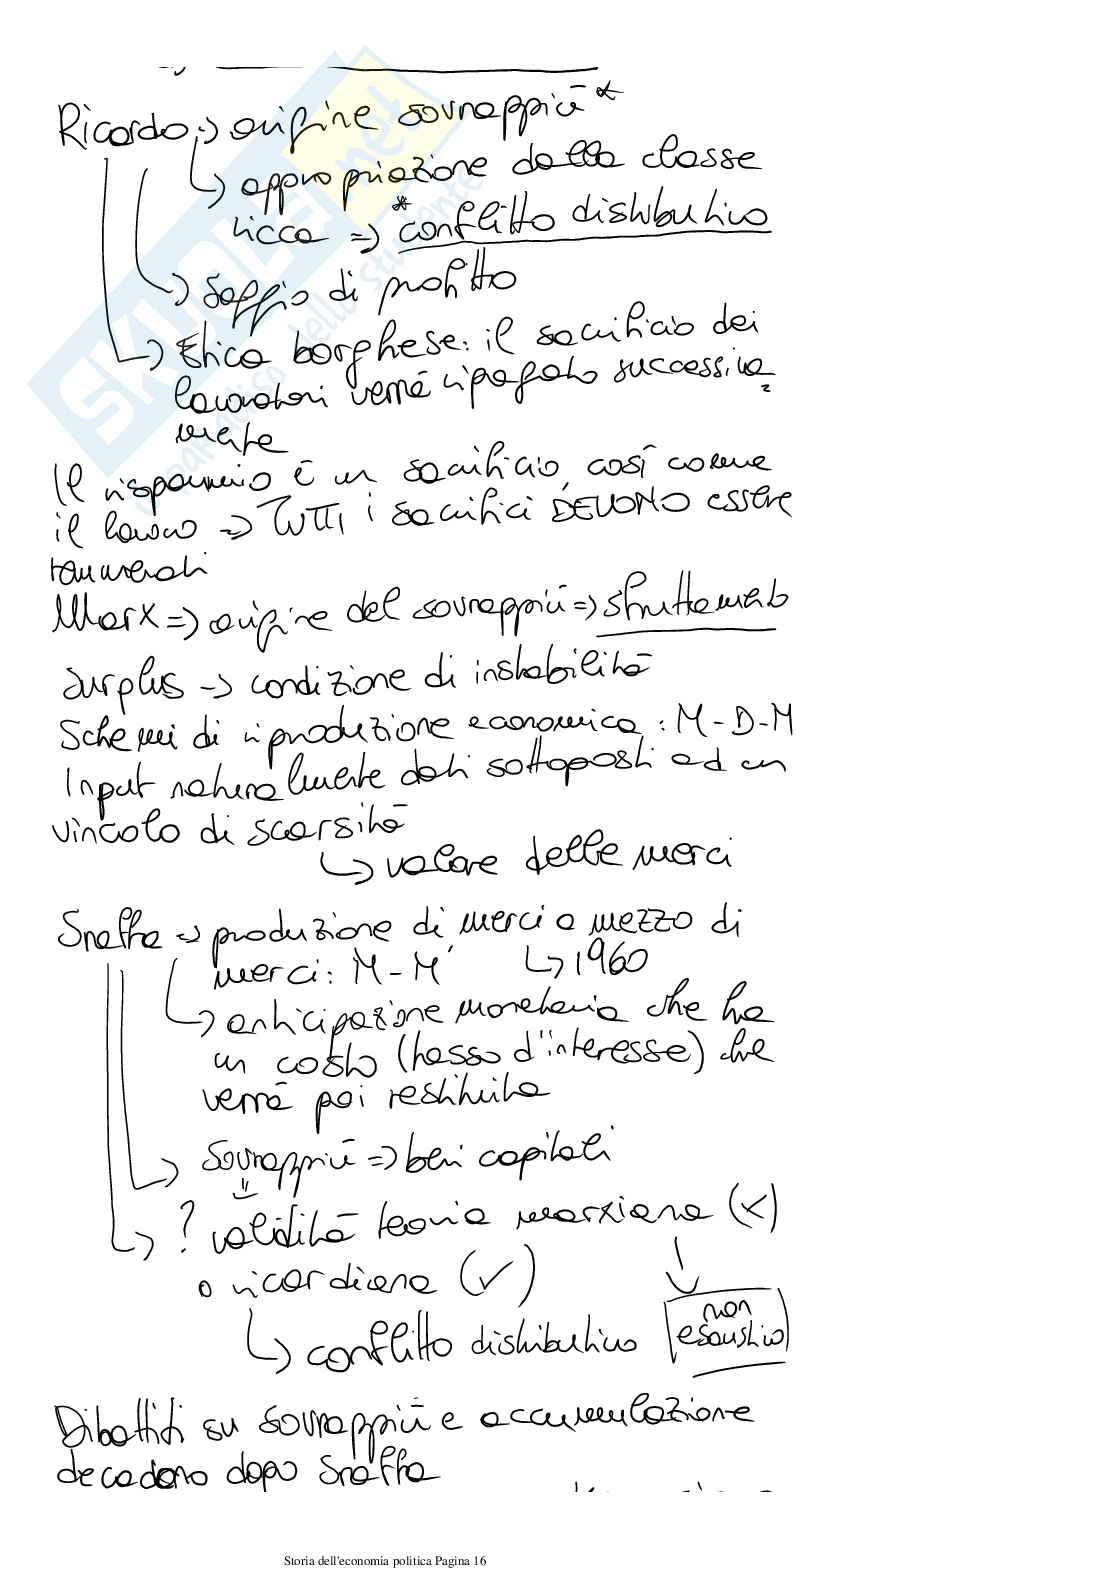 Ricardo => origine sovrappiù *
↳ appropriazione dalla classe
ricca => * conflitto distributivo
↳ saggio di profitto
↳ Etica borghese: il sacrificio dei
lavoratori verrà ripagato successiva
mente
Il risparmio è un sacrificio, così come
il lavoro => TUTTI i sacrifici DEVONO essere
remunerati
Marx => origine del sovrappiù => sfruttamento
Surplus -> condizione di instabilità
Schemi di riproduzione economica: M-D-M
Input naturalmente dati sottoposti ad un
vincolo di scarsità
↳ valore delle merci
Sraffa => produzione di merci a mezzo di
merci: M-M' ↳ 1960
↳ anticipazione monetaria che ha
un costo (tasso d'interesse) che
verrà poi restituita
↳ Sovrappiù => beni capitali
↳ ? validità teoria marxiana (x)
o ricardiana (✓)
non
↳ conflitto distributivo esaustivo
Dibattiti su sovrappiù e accumulazione
decadono dopo Sraffa
SKUOLA.net
paradiso dello studente
Storia dell'economia politica Pagina 16